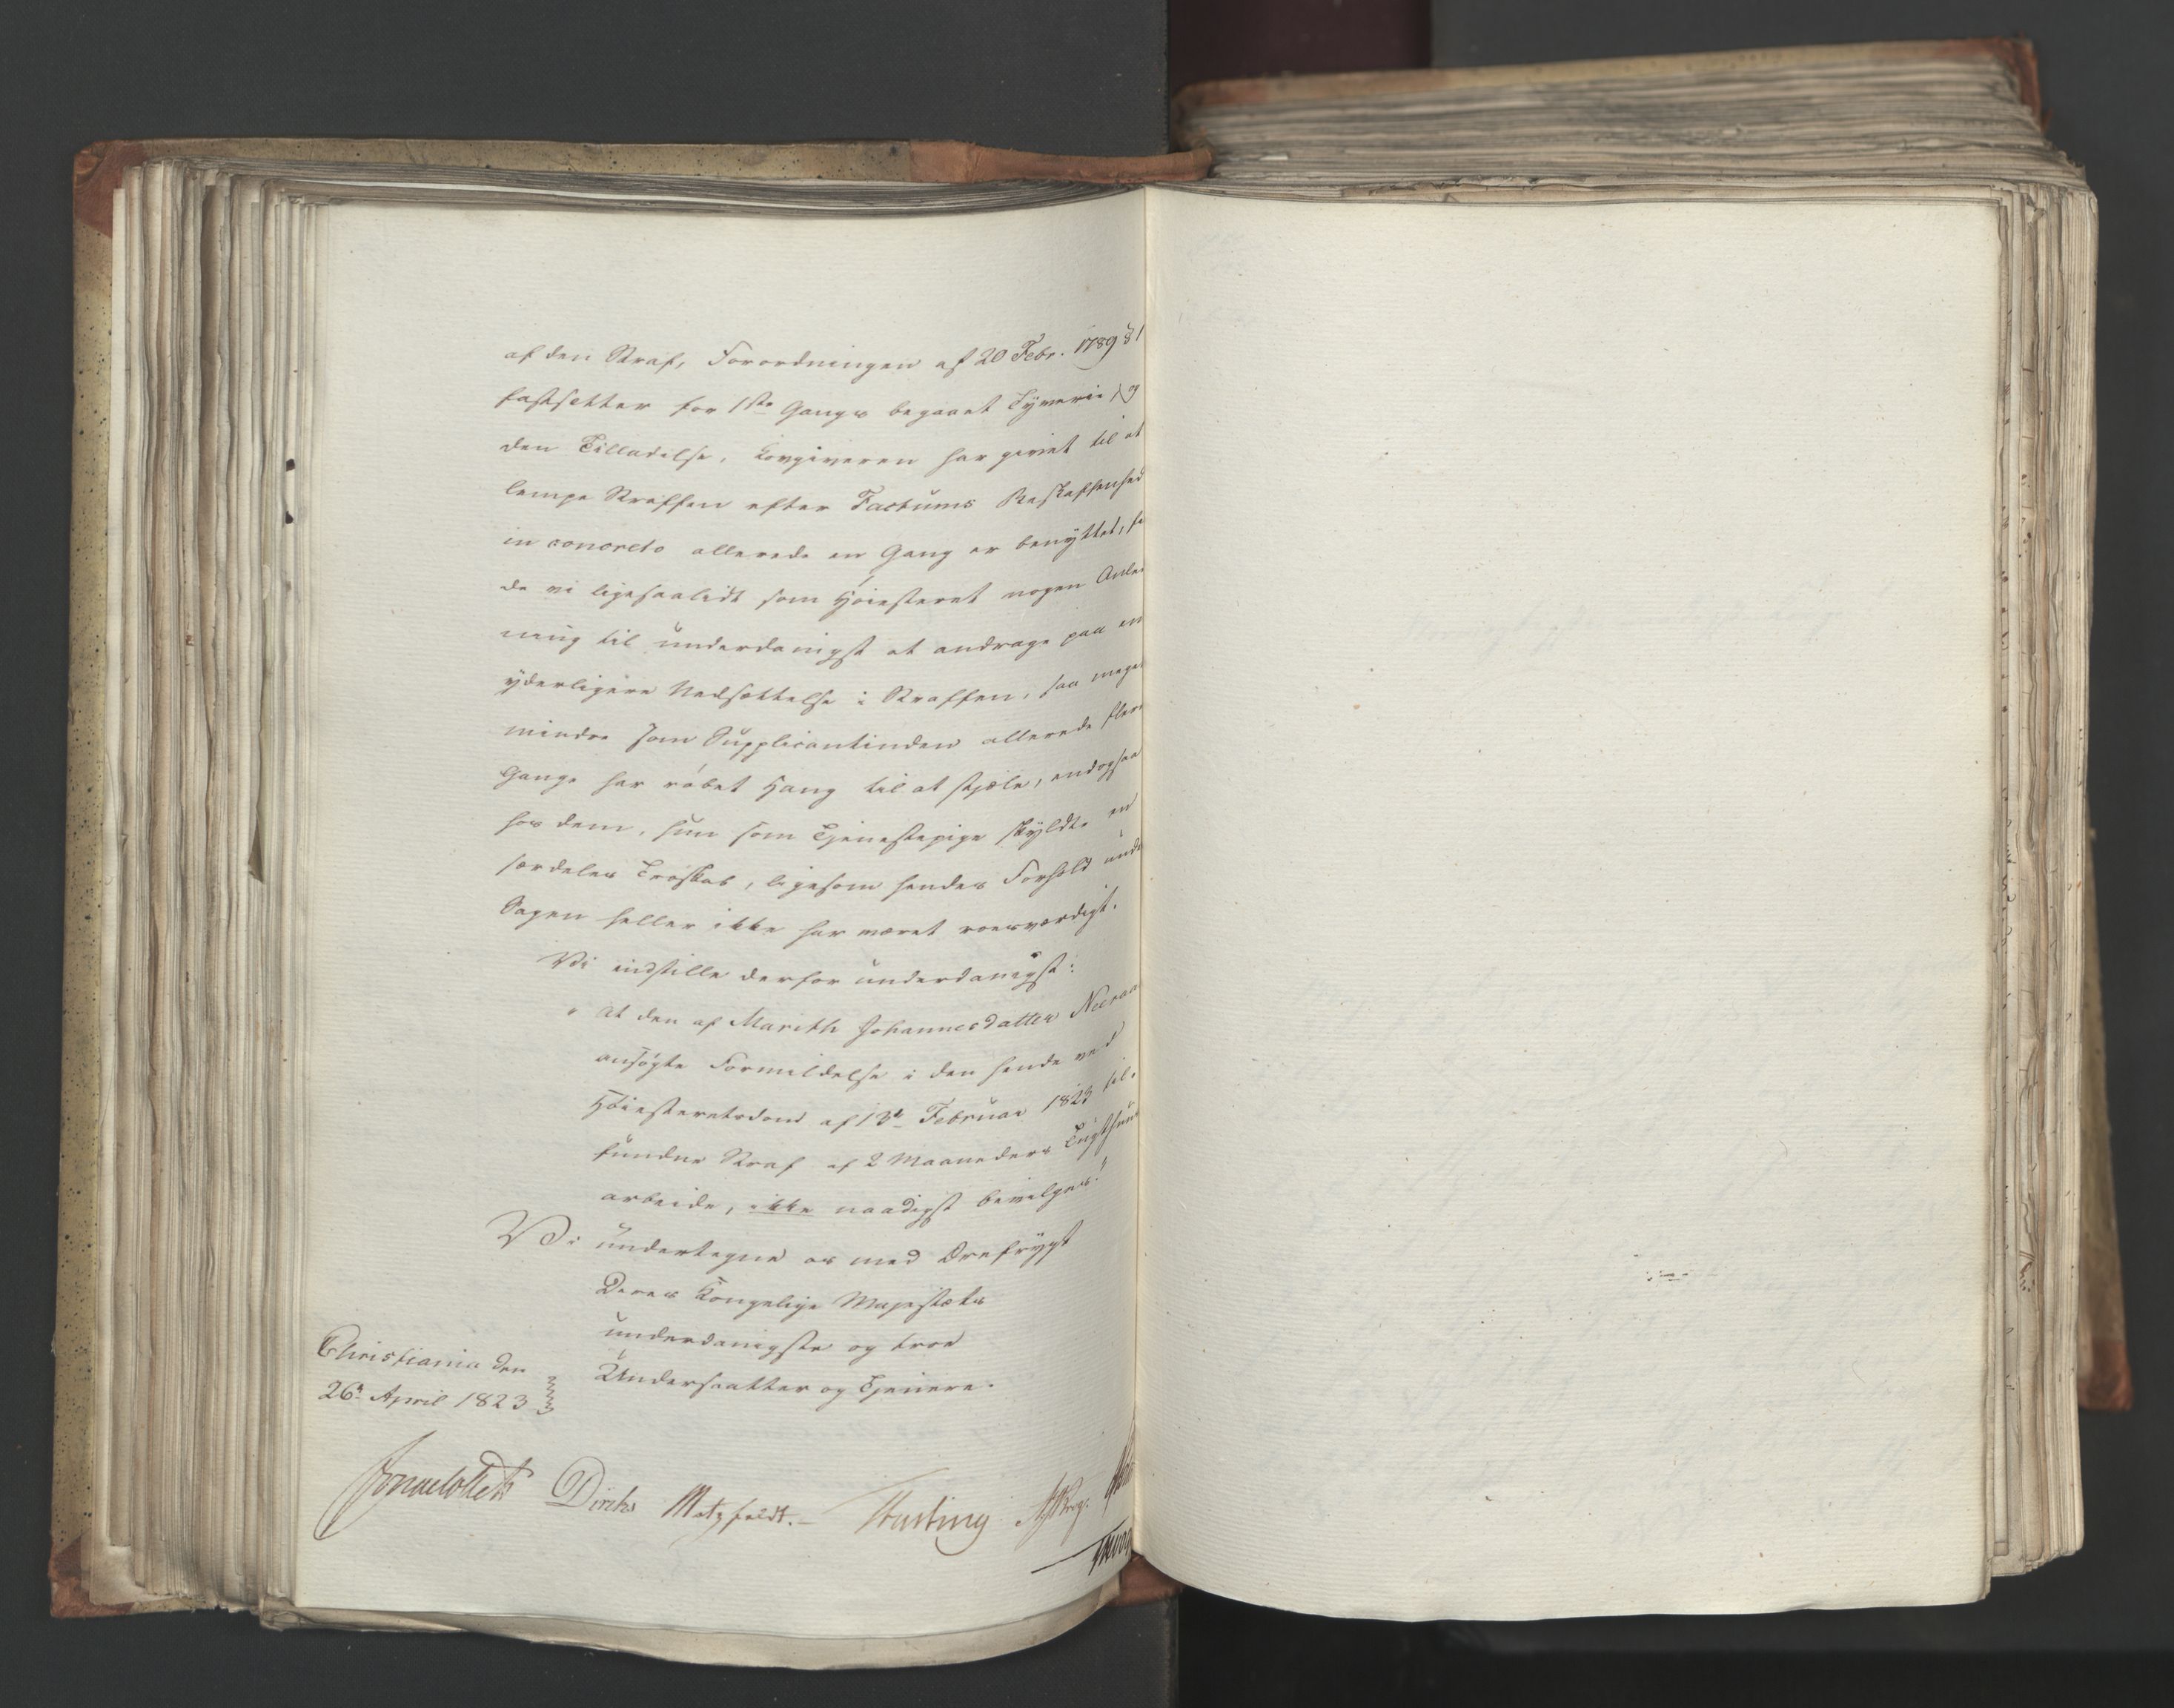 af den Straf, Forordningen af 20 Febr. 1789 § 1
fastsætter for 1ste Gangs begaaet Tyverie, og
den Tilladelse, Lovgiveren har givet til at
lempe Straffen efter Factums Beskaffenhed
in concreto allerede en Gang er benyttet, fin
de vi ligesaalidt som Høiesteret nogen Anled
ning til underdanigst at andrage paa en
yderligere Nedsættelse i Straffen, saa meget
mindre som Supplicantinden allerede flere
Gange har røbet Hang til at stjæle, endogsaa
hos dem, hun som Tjenestepige skyldte en
særdeles Troskab, ligesom hendes Forhold under
Sagen heller ikke har været roesværdigt.
Vi indstille derfor underdanigst:
" at den af Marith Johannesdatter Neeraa
ansøgte Formildelse i den hende ved
Høiesteretsdom af 13de Februar 1823 til-
fundne Straf af 2 Maaneders Tugthuus
arbeide, ikke naadigst bevilges!"
Vi undertegne os med Ærefrygt
Deres Kongelige Majestæts
underdanigste og troe
Undersaatter og Tjenere.
Christiania den
26de April 1823
Jonas Collett Diriks Motzfeldt. Fasting Krog.